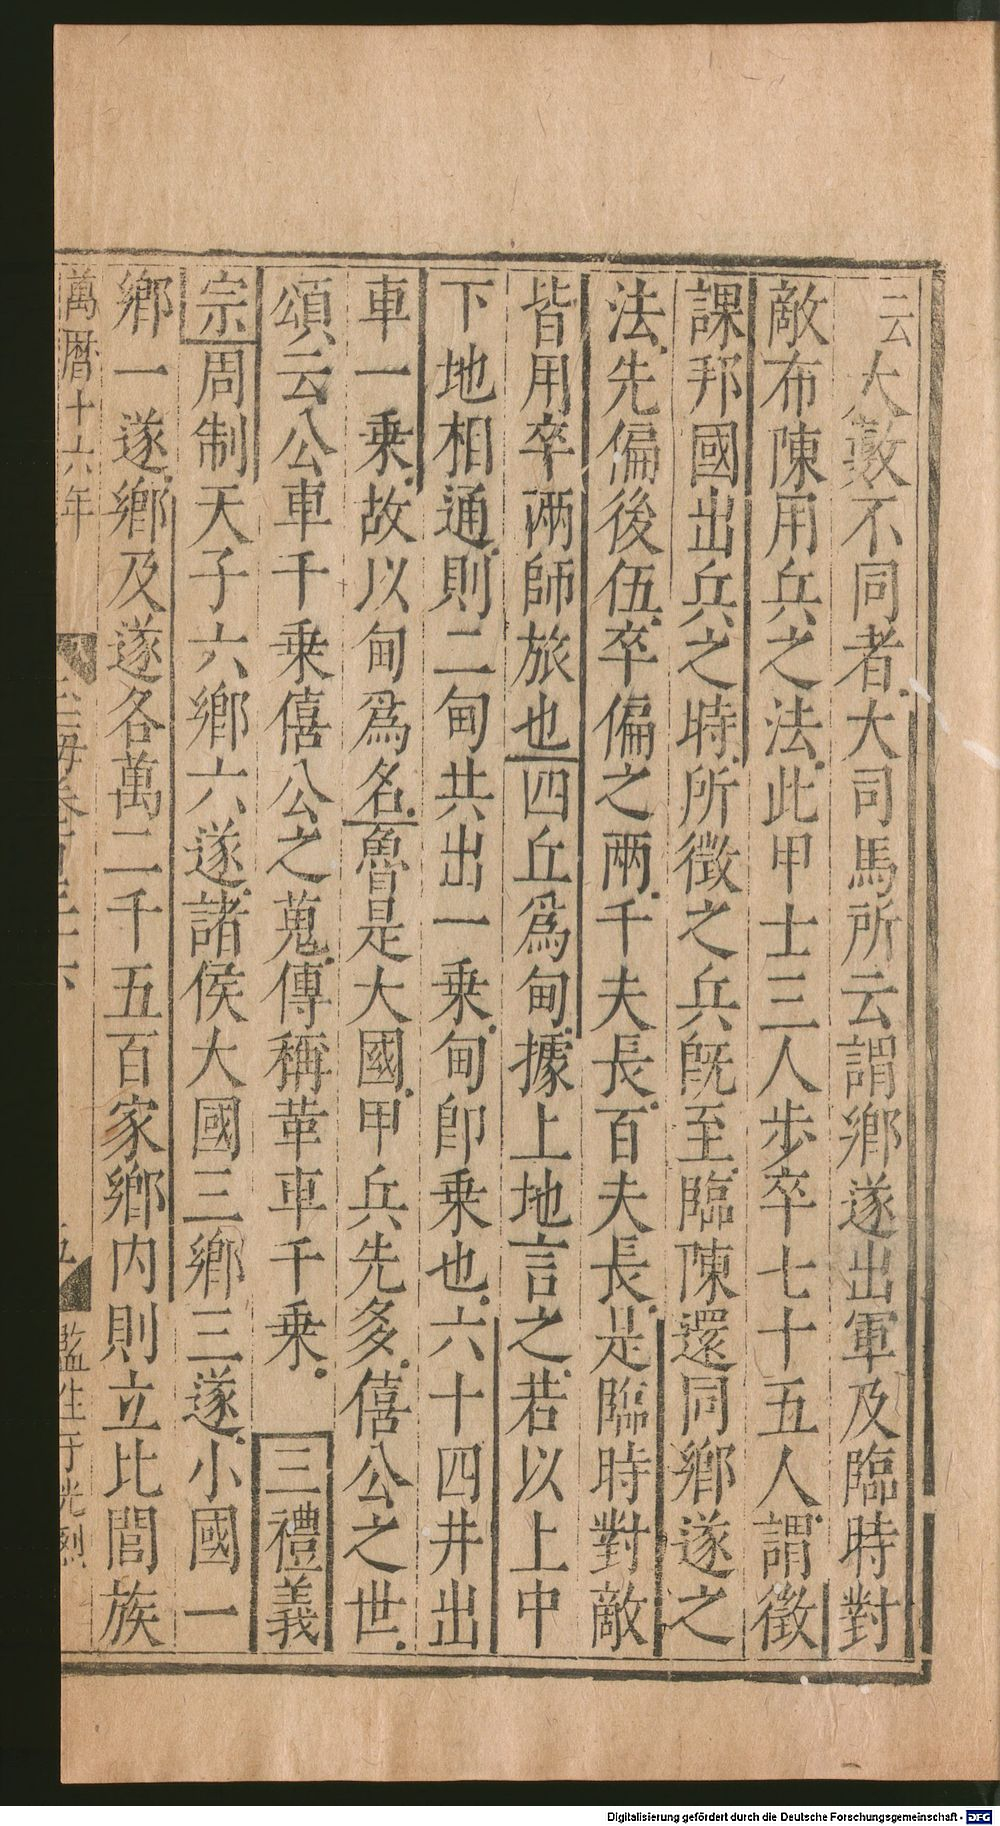 云大數不同者大司馬所云謂鄉遂出軍及臨時對
敵布陳用兵之法此甲士三人步卒七十五人謂徵
課邦國出兵之時所徵之兵旣至臨陳還同鄉遂之
法先偏後伍卒偏之兩千夫長百夫長是臨時對敵
皆用卒兩師旅也四丘爲甸據上地言之若以上中
下地相通則二甸共出一乗甸卽乗也六十四井出
車一乗故以甸爲名魯是大國甲兵先多僖公之世
頌云公車千乗僖公之蒐傳稱革車千乗 三禮義
宗周制天子六鄉六遂諸侯大國三鄉三遂小國一
鄉一遂鄉及遂各萬二千五百家鄉内則立比閭族
萬曆十六年 玉海卷百三十六 五 監生于光烈
Digitalisierung gefördert durch die Deutsche Forschungsgemeinschaft - DFG